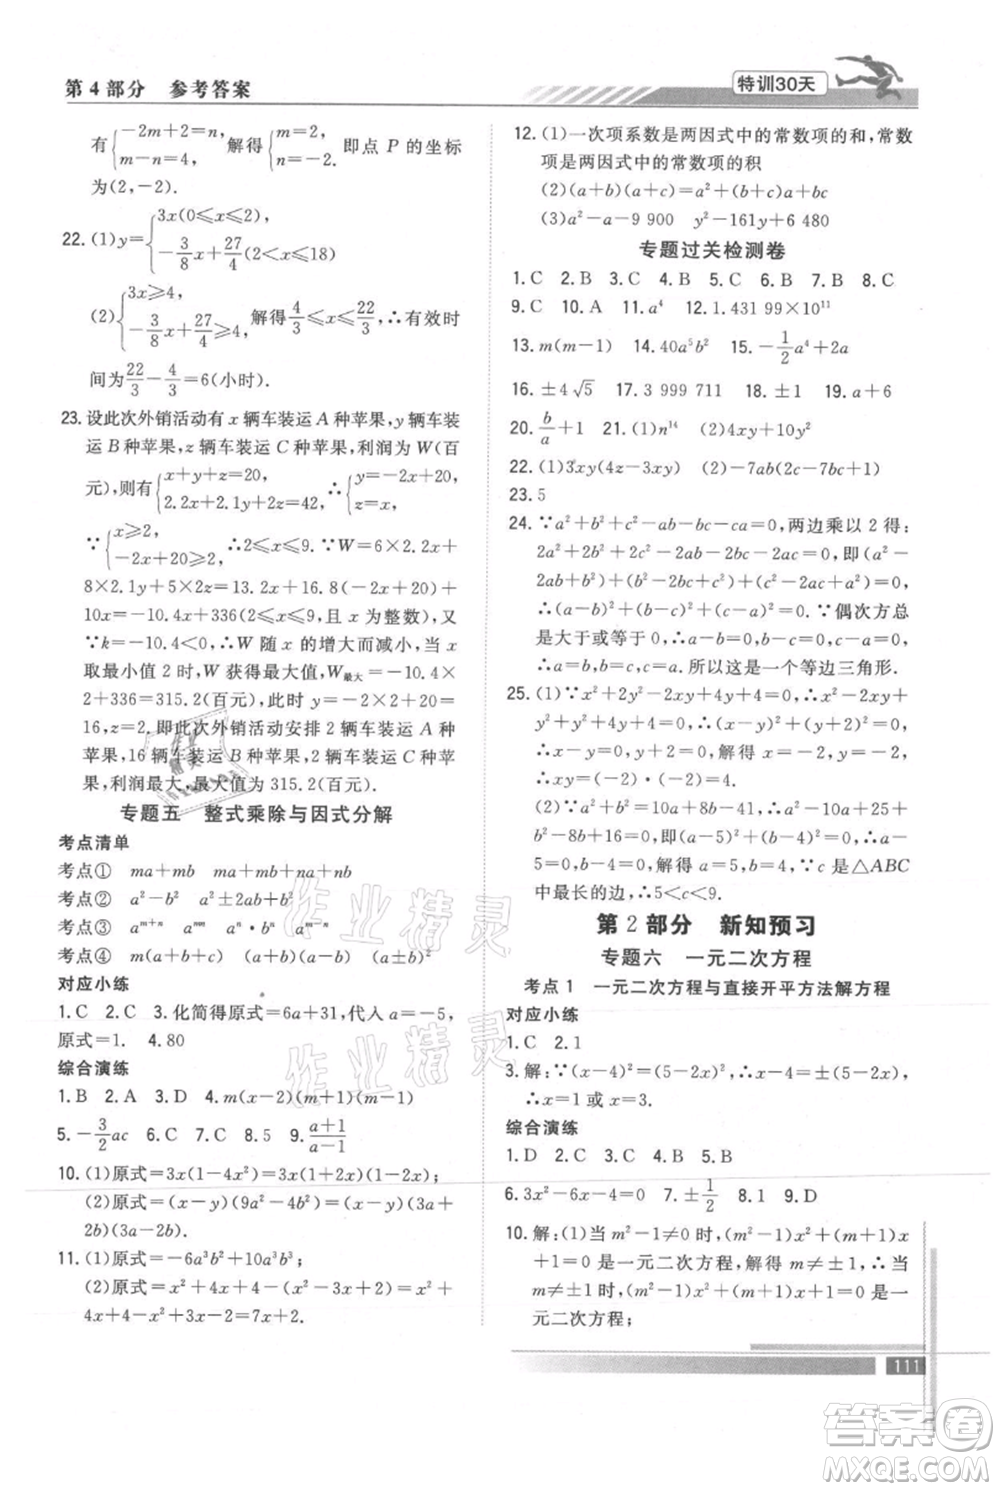 第4部分 参考答案
特训30天
有{-2m+2=0, m-n=4, 解得{m=2, n=-2. 即点 P 的坐标
为(2,-2).
22. (1)y={3x(0⩽x⩽2) -3/8x+27/4(2<x⩽18)
(2){3x⩾4, -3/8x+27/4⩾4, 解得4/3⩽x⩽22/3,∴有效时
间为22/3-4/3=6(小时).
23. 设此次外销活动有 x 辆车装运 A 种苹果,y 辆车装
运 B 种苹果,z 辆车装运 C 种苹果,利润为 W(百
元),则有{x+y+z=20, 2.2x+2.1y+2z=42 ∴{y=-2x+20, z=x.
∵{x⩾2, -2x+20⩾2, ∴2⩽x⩽9. ∵W=6×2.2x+
8×2.1y+5×2z=13.2x+16.8(-2x+20)+
10x=-10.4x+336(2⩽x⩽9,且 x 为整数),又
∵k=-10.4<0,∴W 随 x 的增大而减小,当 x
取最小值 2 时,W 获得最大值,W最大=-10.4×
2+336=315.2(百元),此时 y=-2×2+20=
16,z=2.即此次外销活动安排 2 辆车装运 A 种
苹果,16 辆车装运 B 种苹果,2 辆车装运 C 种苹
果,利润最大,最大值为 315.2(百元).
专题五 整式乘除与因式分解
考点清单
考点① ma+mb ma+mb+na+nb
考点② a²-b² a²±2ab+b²
考点③ aᵐ⁺ⁿ aᵐⁿ aᵐbᵐ aᵐ⁻ⁿ
考点④ (a+b)(a-b) (a±b)²
对应小练
1. C 2. C 3. 化简得原式=6a+31,代入 a=-5,
原式=1. 4. 80
综合演练
1. B 2. A 3. D 4. m(x-2)(mx-2m+1)
5. -3/2ac 6. C 7. C 8. 5 9. a+1/a-1
10. (1)原式=3x(1-4x²)=3x(1+2x)(1-2x);
(2)原式=(x-y)(9a²-4b²)=(x-y)(3a+
2b)(3a-2b).
11. (1)原式=-6a³b²+10a³b³;
(2)原式=x²+4x+4-(x²-2x-x+2)=x²
+4x+4-x²+2x+x-2=7x+2.
12. (1)一次项系数是两因式中的常数项的和,常数
项是两因式中的常数项的积
(2)(a+b)(a+c)=a²+(b+c)a+bc
(3)a²-a-9 900 y²-161y+6 480
专题过关检测卷
1. C 2. B 3. C 4. B 5. C 6. B 7. B 8. C
9. C 10. A 11. a⁴ 12. 1.431 99×10¹¹
13. m(m-1) 14. 40a⁵b² 15. -1/2a⁴+2a
16. ±4√5 17. 3 999 711 18. ±2 19. a+6
20. b/a+1 21. (1)n¹⁴ (2)4xy+10y²
22. (1)3xy(4z-3xy) (2)-7ab(2c-2b+1)
23. 5
24. ∵a²+b²+c²-ab-bc-ca=0,两边乘以 2 得:
2a²+2b²+2c²-2ab-2bc-2ac=0,即(a²-
2ab+b²)+(b²-2bc+c²)+(c²-2ac+a²)=0,
∴(a-b)²+(b-c)²+(c-a)²=0.∵偶次方总
是大于或等于 0,∴a-b=0,b-c=0,c-a=0,
∴a=b,b=c,c=a.所以这是一个等边三角形.
25. (1)∵x²+2y²-2xy+4y+4=0,∴x²-2xy+
y²+y²+4y+4=0,∴(x-y)²+(y+2)²=0,
∴x-y=0,y+2=0,解得 x=-2,y=-2,∴xʸ
=(-2)⁻²=1/4.
(2)∵a²+b²=10a+8b-41,∴a²-10a+25+
b²-8b+16=0,即(a-5)²+(b-4)²=0,a-5
=0,b-4=0,解得 a=5,b=4,∵c 是△ABC
中最长的边,∴5<c<9.
第2部分 新知预习
专题六 一元二次方程
考点1 一元二次方程与直接开平方法解方程
对应小练
1. C 2. 1
3. 解:∵(x-2)²-1=0,∴(x-2)²=1,x-2=±1,
∴x=1 或 x=3.
综合演练
1. D 2. C 3. D 4. B 5. B
6. 3x²-6x-4=0 7. ±1/2 8. 1 9. D
10. 解:(1)当 m²-1≠0 时,(m²-1)x²+(m+1)x
+1=0 是一元二次方程,解得 m≠±1,∴当
m≠±1 时,(m²-1)x²+(m+1)x+1=0 是
一元二次方程;
111
作业精灵
作业精灵
作业精灵
答案圈
MXQE.COM